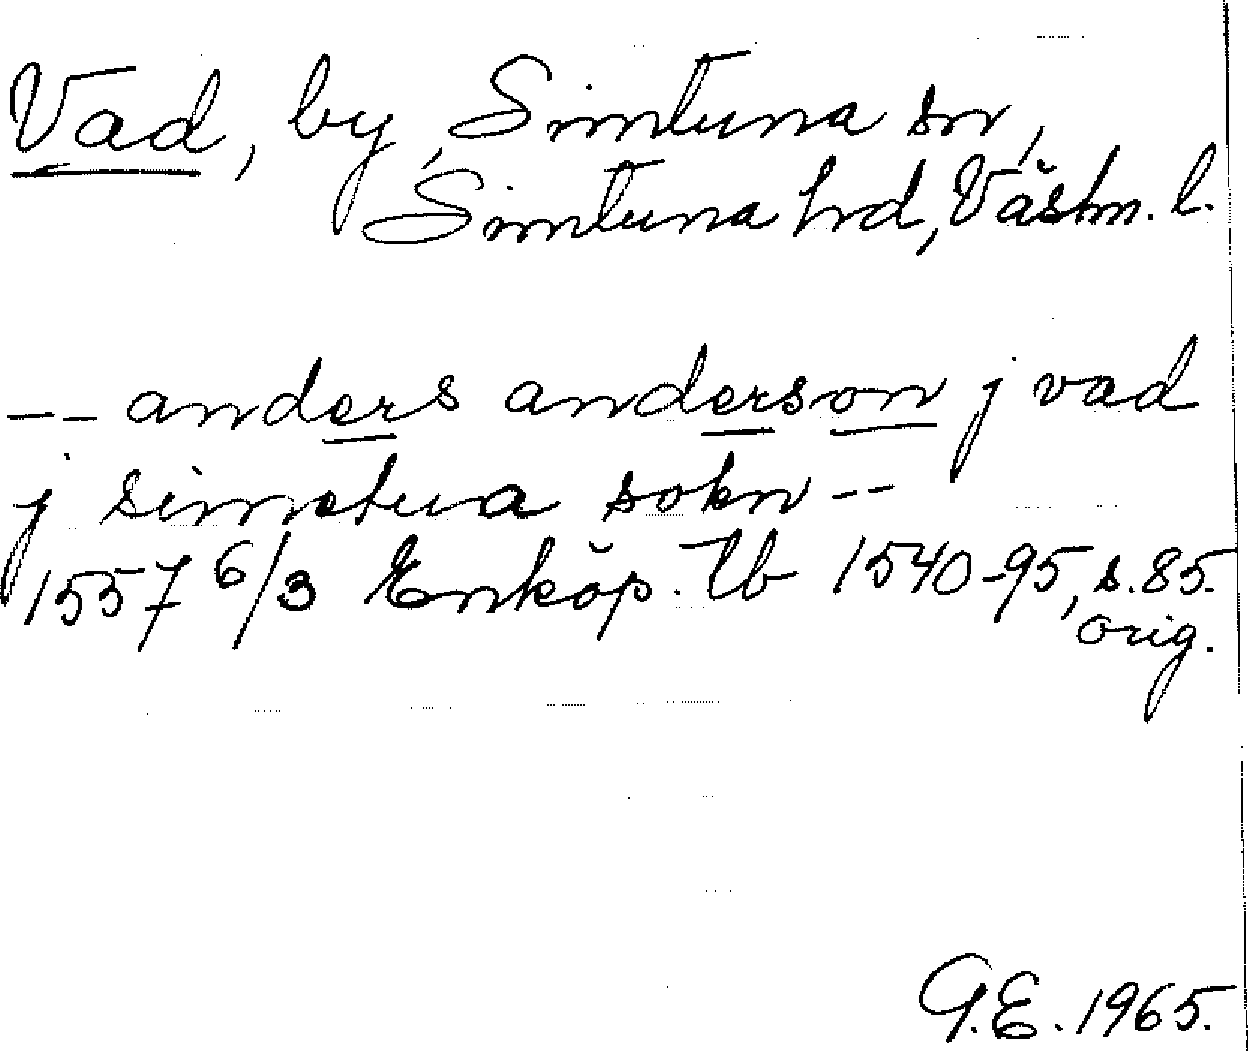 Vad, by, Simtuna sn,
Simtuna hrd, Västm. l.
-- anders anderson j vad
j simetua sokn --
1557 6/3 Enköp. Tb 1540-95, s. 85.
orig.
G.E. 1965.